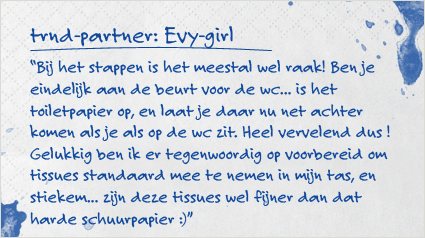 trnd-partner: Evy-girl
"Bij het stappen is het meestal wel raak! Ben je
eindelijk aan de beurt voor de wc... is het
toiletpapier op, en laat je daar nu net achter
komen als je als op de wc zit. Heel vervelend dus !
Gelukkig ben ik er tegenwoordig op voorbereid om
tissues standaard mee te nemen in mijn tas, en
stiekem... zijn deze tissues wel fijner dan dat
harde schuurpapier :)"